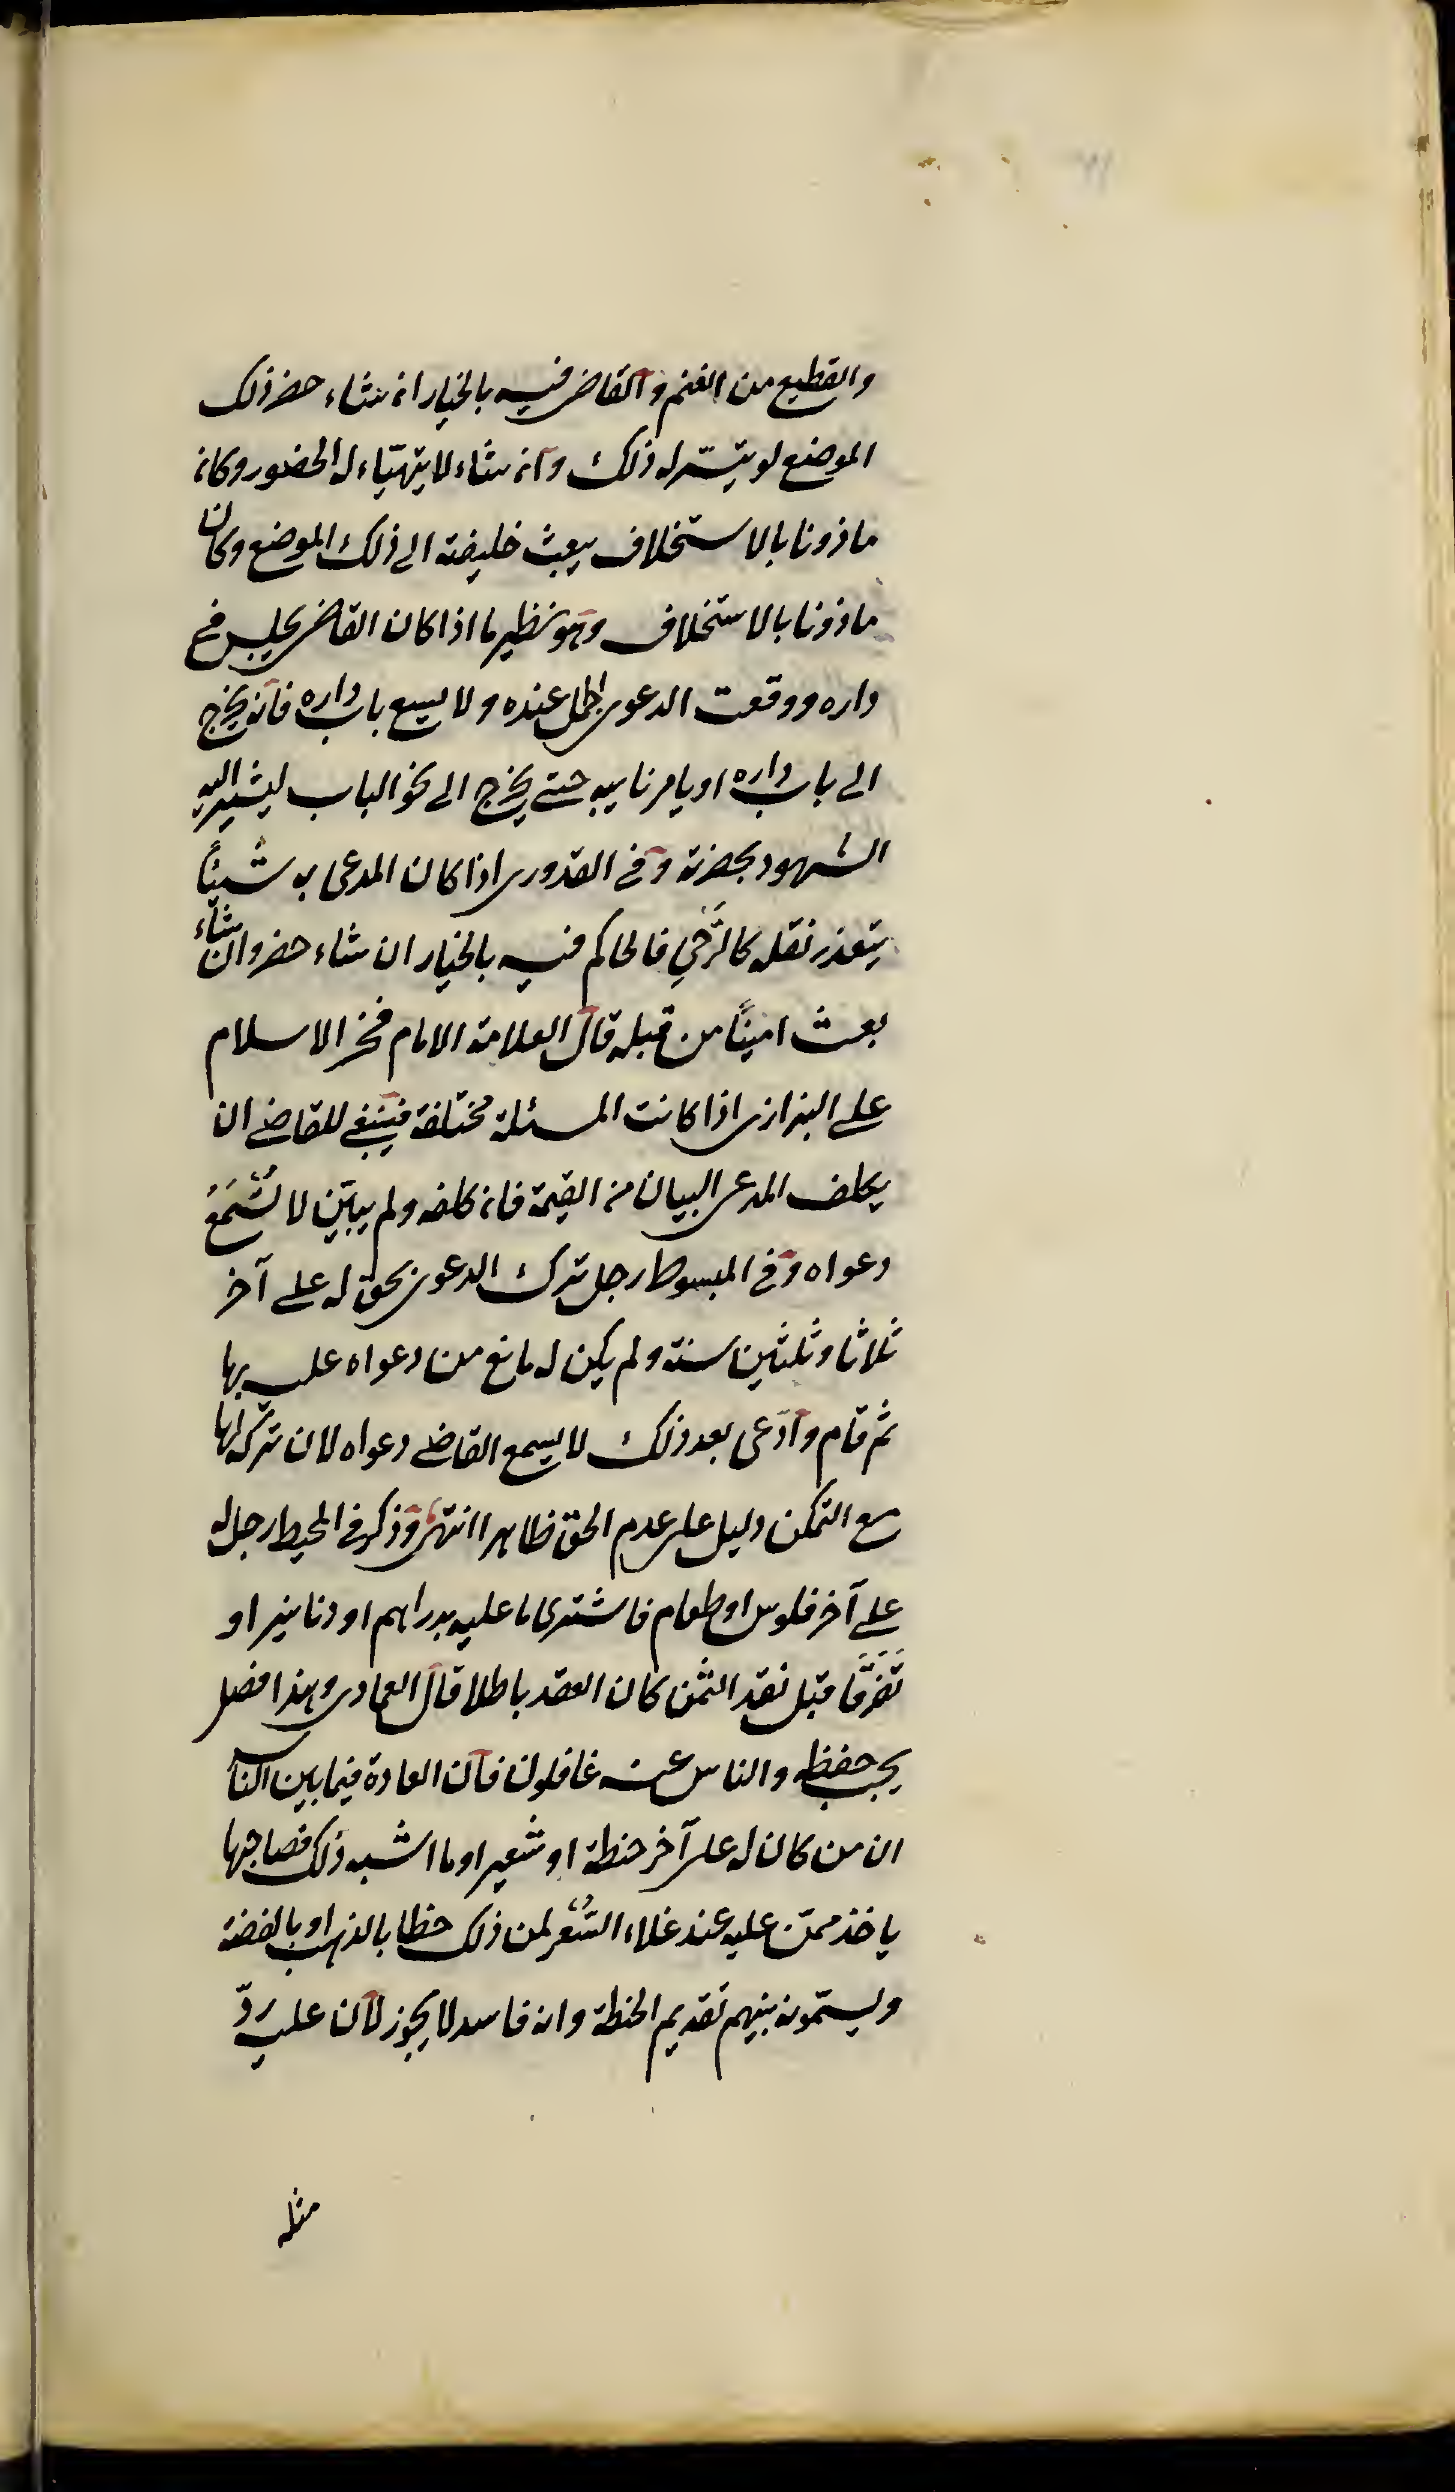 والقطيع من الغنم والقاضى فيه بالخيار ان شاء حضر ذلك
الموضع لو يتيسّر له ذلك وان شاء لا يتهيّاء له الحضور وكان
ماذونا بالاستخلاف يبعث خليفته الى ذلك الموضع وكان
ماذونا بالاستخلاف وهو نظير ما اذا كان القاضى يجلس فى
داره ووقعت الدعوى عنده ولا يسع باب داره فانه يخرج
الى باب داره او يامر نايبه حتى يخرج الى نحو الباب ليشير اليه
الشهود بحضرته وفى القدورى اذا كان المدعى به شيئاً
يتعذر نقله كالرَّحي فالحاكم فيه بالخيار ان شاء حضر وان شاء
بعث اميناً من قبله قال العلامة الامام فخر الاسلام
على البزازى اذا كانت المسئلة مختلفة فينبغى للقاضى ان
يكلف المدعى البيان من القيمة فان كلفه ولم يبيّن لا تُسْمَعُ
دعواه وفى المبسوط رجل ترك الدعوى بحق له على آخر
ثلاثا وثلثين سنة ولم يكن له مانع من دعواه عليه بها
ثم قام وادّعى بعد ذلك لا يسمع القاضى دعواه لان تركه لها
مع التمكن دليل على عدم الحق ظاهرا انتهى وذكر فى المحيط رجل له
على آخر فلوس او طعام فاشترى ما عليه بدراهم او دنانير او
تَفَرَّقا قبل نقد الثمن كان العقد باطلا قال العمادى وهذا فصل
يجب حفظه والناس عنه غافلون فان العادة فيما بين الناس
ان من كان له على آخر حنطة او شعير او ما اشبه ذلك فصاحبها
ياخذ ممّن عليه عند غلاء السِّعر لمن ذلك حظا بالذهب او بالفضة
ويسمّونه بينهم تقديم الحنطة وانه فاسد لا يجوز لان عليه ردّ
مثله